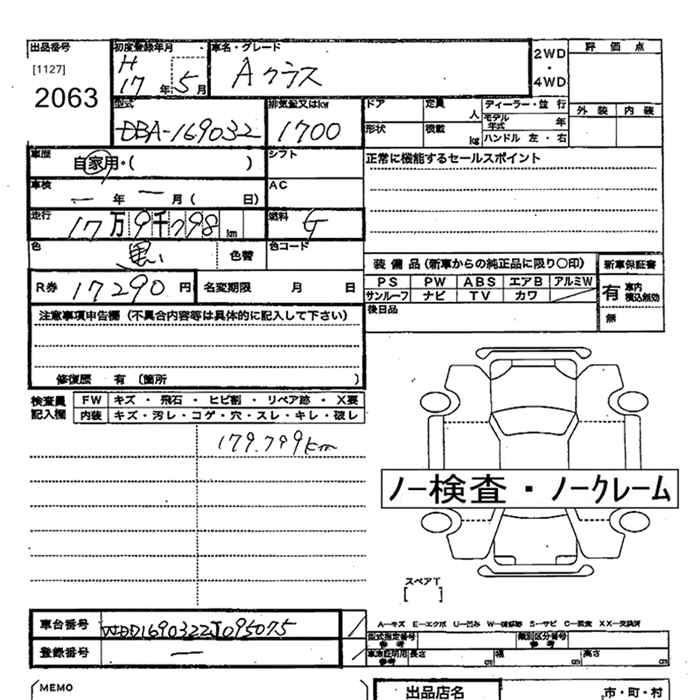 出品番号 初度登録年月 車名・グレード 評価点
[1127] H 17年 5月 Aクラス 2WD・4WD
2063 外装 内装
型式 排気量又はkw ドア 定員 人 ディーラー・並行
DBA-169032 1700 形状 積載 kg モデル年式 年
ハンドル 左・右
車歴 自家用・( ) シフト 正常に機能するセールスポイント
車検 ー年ー月( 日) AC
走行 17万9千798km 燃料 G
色 黒 色替 色コード
装備品(新車からの純正品に限り○印) 新車保証書
R券 17290円 名変期限 月 日 PS PW ABS エアB アルミW 有 車内積込無効
サンルーフ ナビ TV カワ
後日品 無
注意事項申告欄(不具合内容等は具体的に記入して下さい)
修復歴 有〔箇所 〕
検査員記入欄 FW キズ・飛石・ヒビ割・リペア跡・X要
内装 キズ・汚レ・コゲ・穴・スレ・キレ・破レ
179.799km
ノー検査・ノークレーム
スペアT
[ ]
車台番号 WDD1690322J095075 A―キズ E―エクボ U―凹み
型式指定番号 参考 類別区分番号 参考
登録番号 ー 車庫証明用 参考 長さ cm 幅 cm 高さ cm
MEMO 出品店名 市・町・村